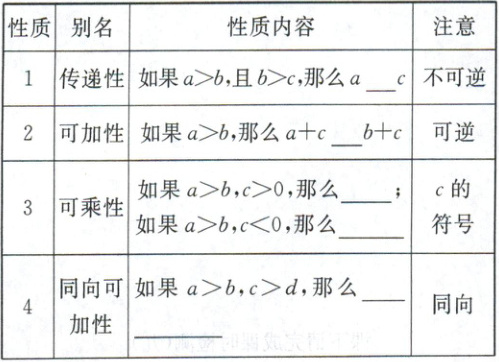 性质 别名 性质内容 注意
1 传递性 如果a>b,且b>c,那么a ___c 不可逆
2 可加性 如果a>b,那么a+c ___b+c 可逆
3 可乘性 如果a>b,c>0,那么____;
如果a>b,c<0,那么_____
c的
符号
4 同向可
加性
如果a>b,c>d,那么____
________
同向